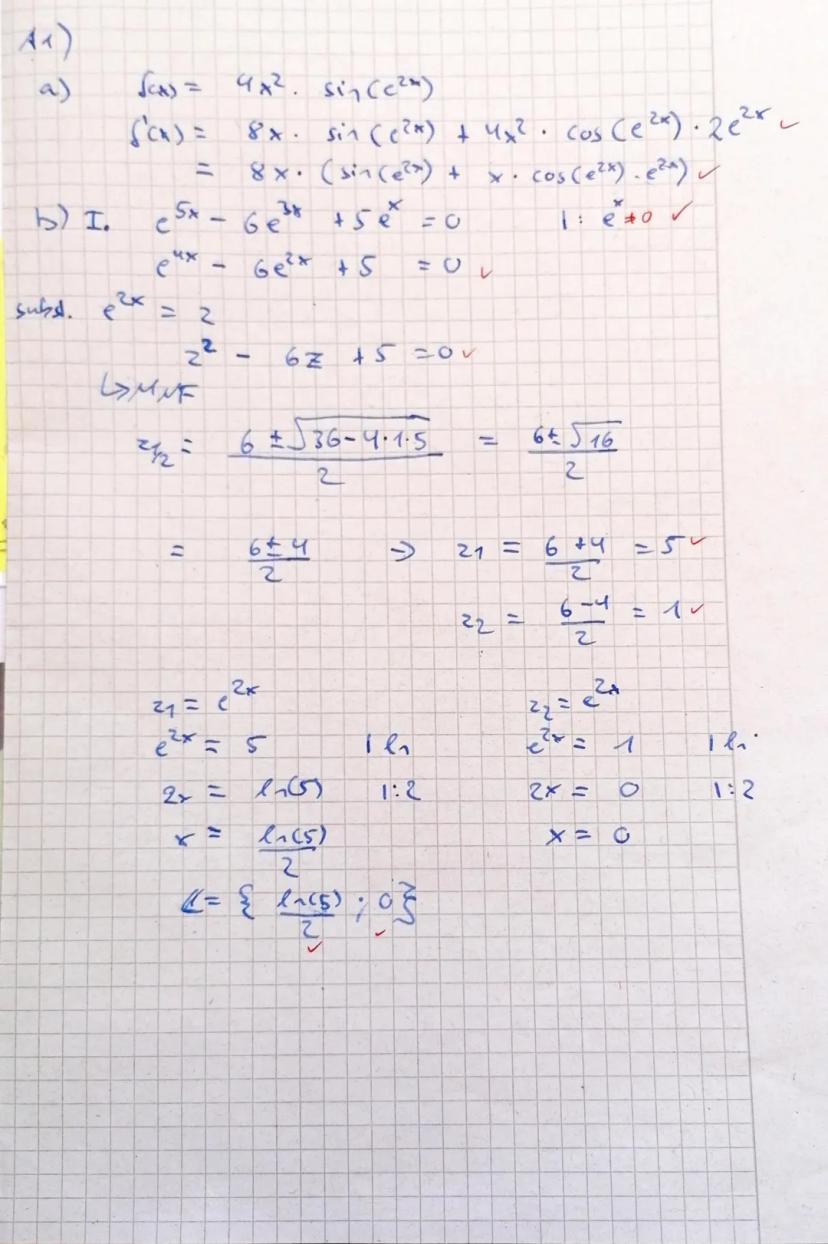 A1)
a) f(x) = 4x² · sin(e^(2x))
f'(x) = 8x · sin(e^(2x)) + 4x² · cos(e^(2x)) · 2e^(2x) ✓
= 8x · (sin(e^(2x)) + x · cos(e^(2x)) · e^(2x)) ✓
b) I. e^(5x) − 6e^(3x) + 5e^x = 0 |: e^x ≠0 ✓
e^(4x) − 6e^(2x) + 5 = 0 ✓
subst. e^(2x) = z
z² − 6z + 5 = 0 ✓
↳ MNF
z1/2 = (6 ± √(36−4·1·5))/2 = (6 ± √16)/2
= (6 ± 4)/2 → z1 = (6+4)/2 = 5 ✓
z2 = (6−4)/2 = 1 ✓
z1 = e^(2x) z2 = e^(2x)
e^(2x) = 5 | ln e^(2x) = 1 | ln
2x = ln(5) |:2 2x = 0 |:2
x = ln(5)/2 x = 0
L = { ln(5)/2 ; 0 } ✓ ✓